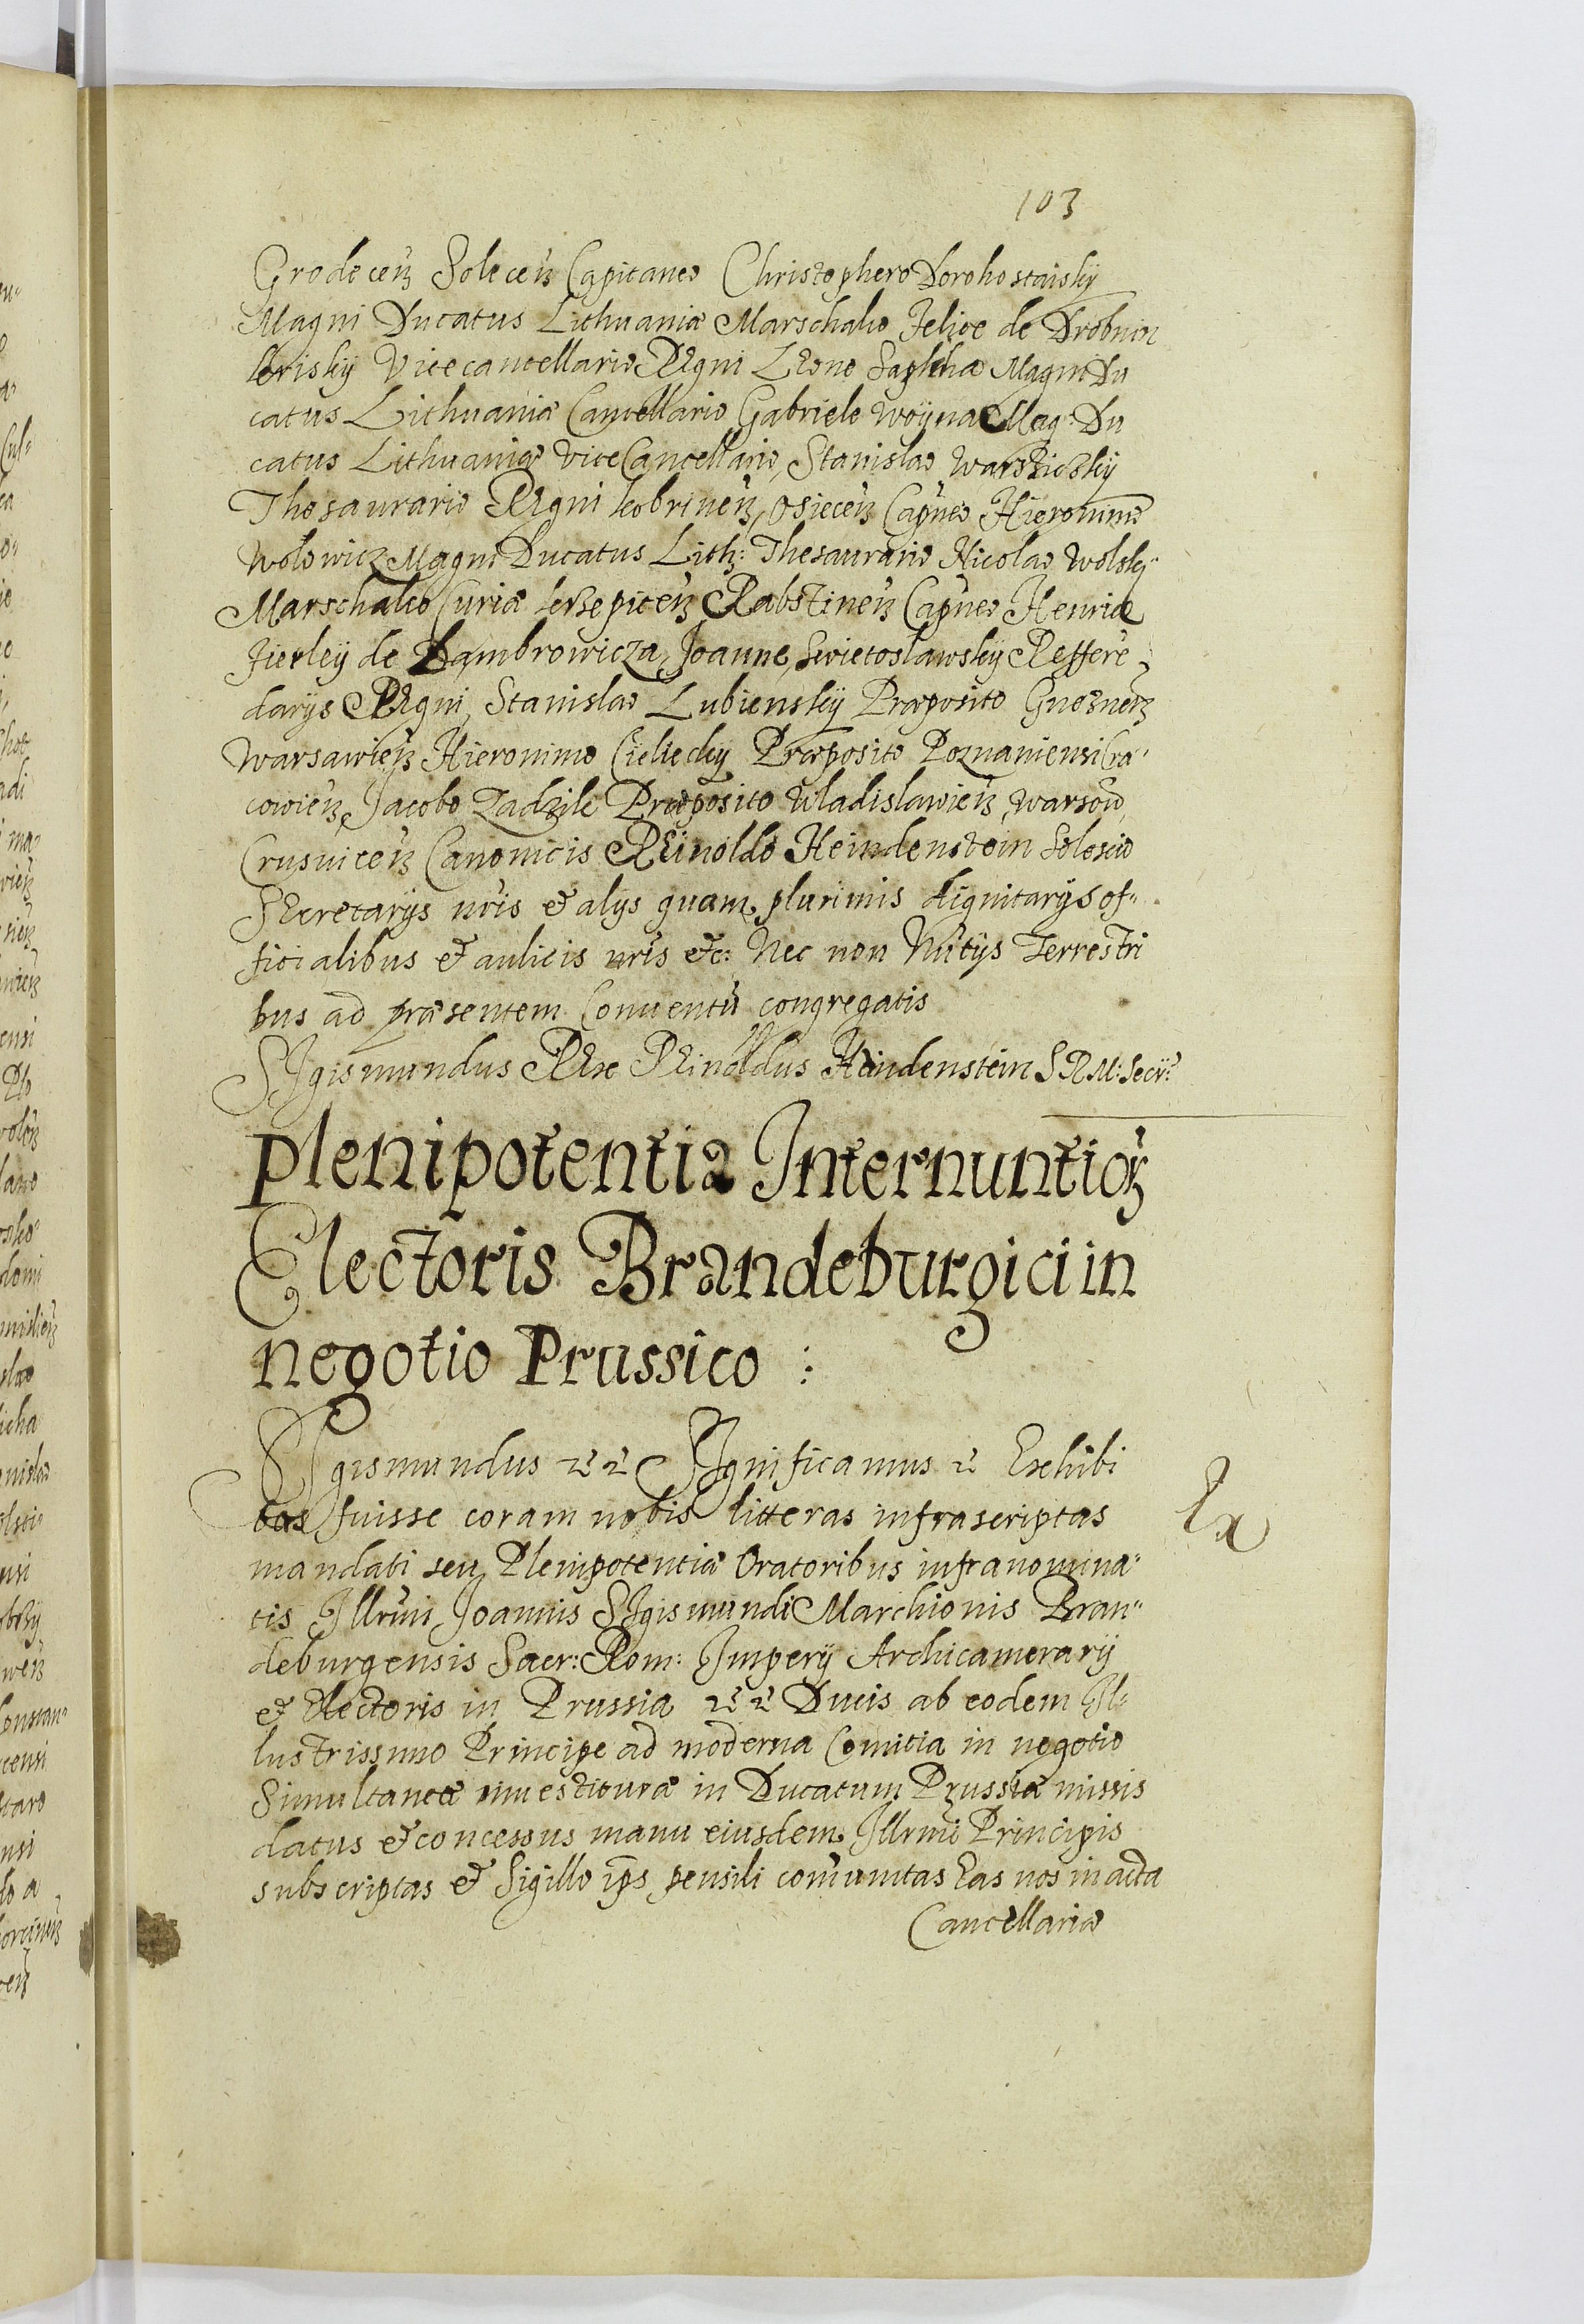 103
Grodeceñ Soleceñ Capitaneo Christophero Dorohostaisky
Magni Ducatus Lithuaniæ Marschalco Felice de Drobnin
krisky Vicecancellario Regni Leone Sapieha Magni Du
catus Lithuaniæ Cancellario Gabriele Woÿna Mag: Du
catus Lithuaniæ ViceCancellario, Stanislao Warszicky
Thesaurario Regni kobrineñ, Osieceñ Capneo Hieronimo
Wolowicz Magni Ducatus Lith: Thesaurario Nicolao Wolsky
Marschalco Curiæ krzepiceñ Rabstineñ Capneo Henrico
Firleÿ de Dambrowicza, Joanne Swietoslawskÿ Reffere
darÿs Regni, Stanislao Lubienskÿ Præposito Gneznen
Warsawieñ Hieronimo Cielecky Præposito Poznaniensi Cra-
cowieñ, Jacobo Zadzik Præposito Wladislawieñ, Warsow,
Crusuiceñ Canonicis Reinoldo Heindenstein Solescio
Secretarÿs nris et alÿs quam plurimis dignitarÿs of-
ficialibus et aulicis nris etc: Nec non Nutÿs Terrestri
bus ad præsentem Conuentu congregatis
Sigismundus Rex Reinoldus Heindenstein S R M: Secr:
Plenipotentia Internuntior
Electoris Brandeburgici in
negotio Prussico :
Sigismundus etc etc Significamus etc Exhibi
tas fuisse coram nobis litteras infrascriptas
mandati seu Plenipotentiæ Oratoribus infranomina-
tis Illrmi Joannis Sigismundi Marchionis Bran-
deburgensis Sacr: Rom: Imperÿ Archicamerarÿ
et Electoris in Prussia etc etc Ducis ab eodem Il-
lustrissimo Principe ad moderna Comitia in negotio
Simultaneæ inuestituræ in Ducatum Prussiæ missis
datus et concessus manu eiusdem Illrmi Principis
subscriptas et Sigillo ips pensili comunitas Eas nos in acta
Cancellariæ